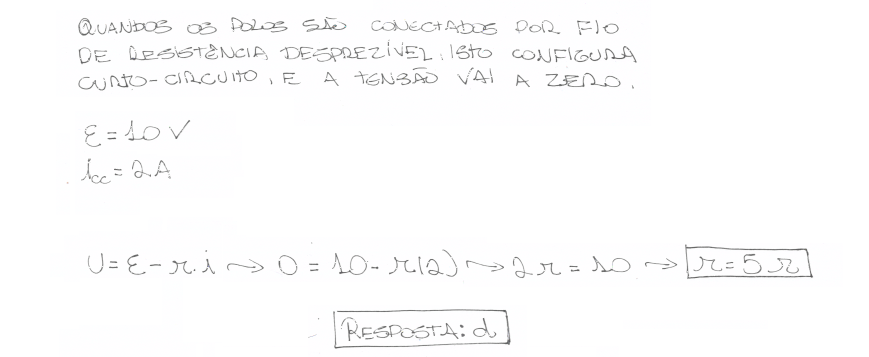 QUANDOS OS POLOS SÃO CONECTADOS POR FIO
DE RESISTÊNCIA DESPREZÍVEL, ISTO CONFIGURA
CURTO-CIRCUITO, E A TENSÃO VAI A ZERO.
ε = 10 V
icc = 2A
U = ε - r.i → 0 = 10 - r(2) → 2r = 10 → r = 5Ω
RESPOSTA: d